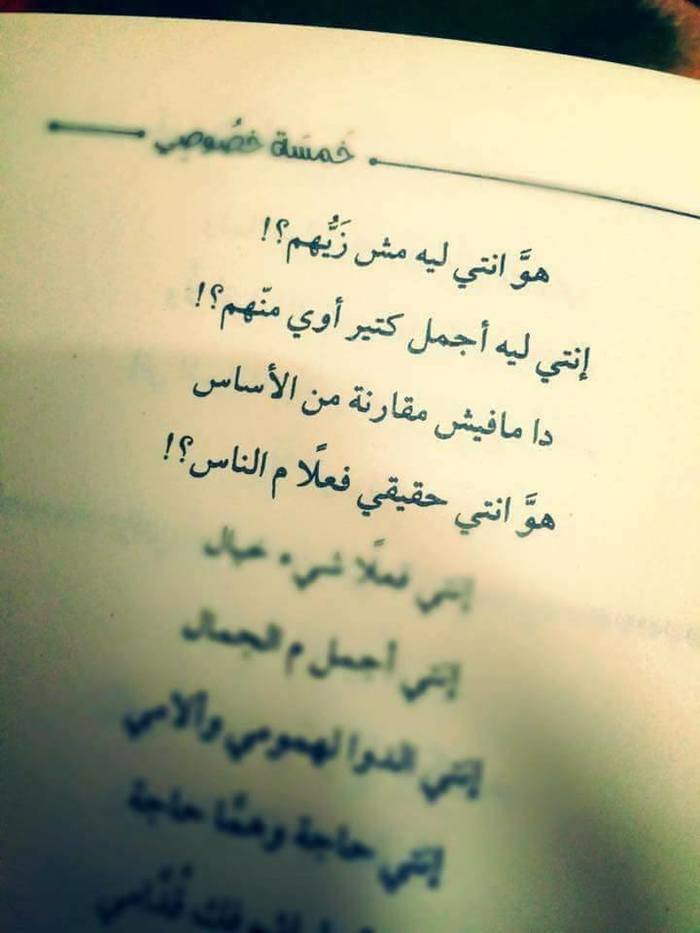 خمسَة خصُوصِي
هوَّ انتي ليه مش زَيُّهم؟!
إنتي ليه أجمل كتير أوي منّهم؟!
دا مافيش مقارنة من الأساس
هوَّ انتي حقيقي فعلًا م الناس؟!
إنتي فعلًا شيء خيال
إنتي أجمل م الجمال
إنتي الدوا لهمومي وآلامي
إنتي حاجة وهمَّا حاجة
قُدَّامي